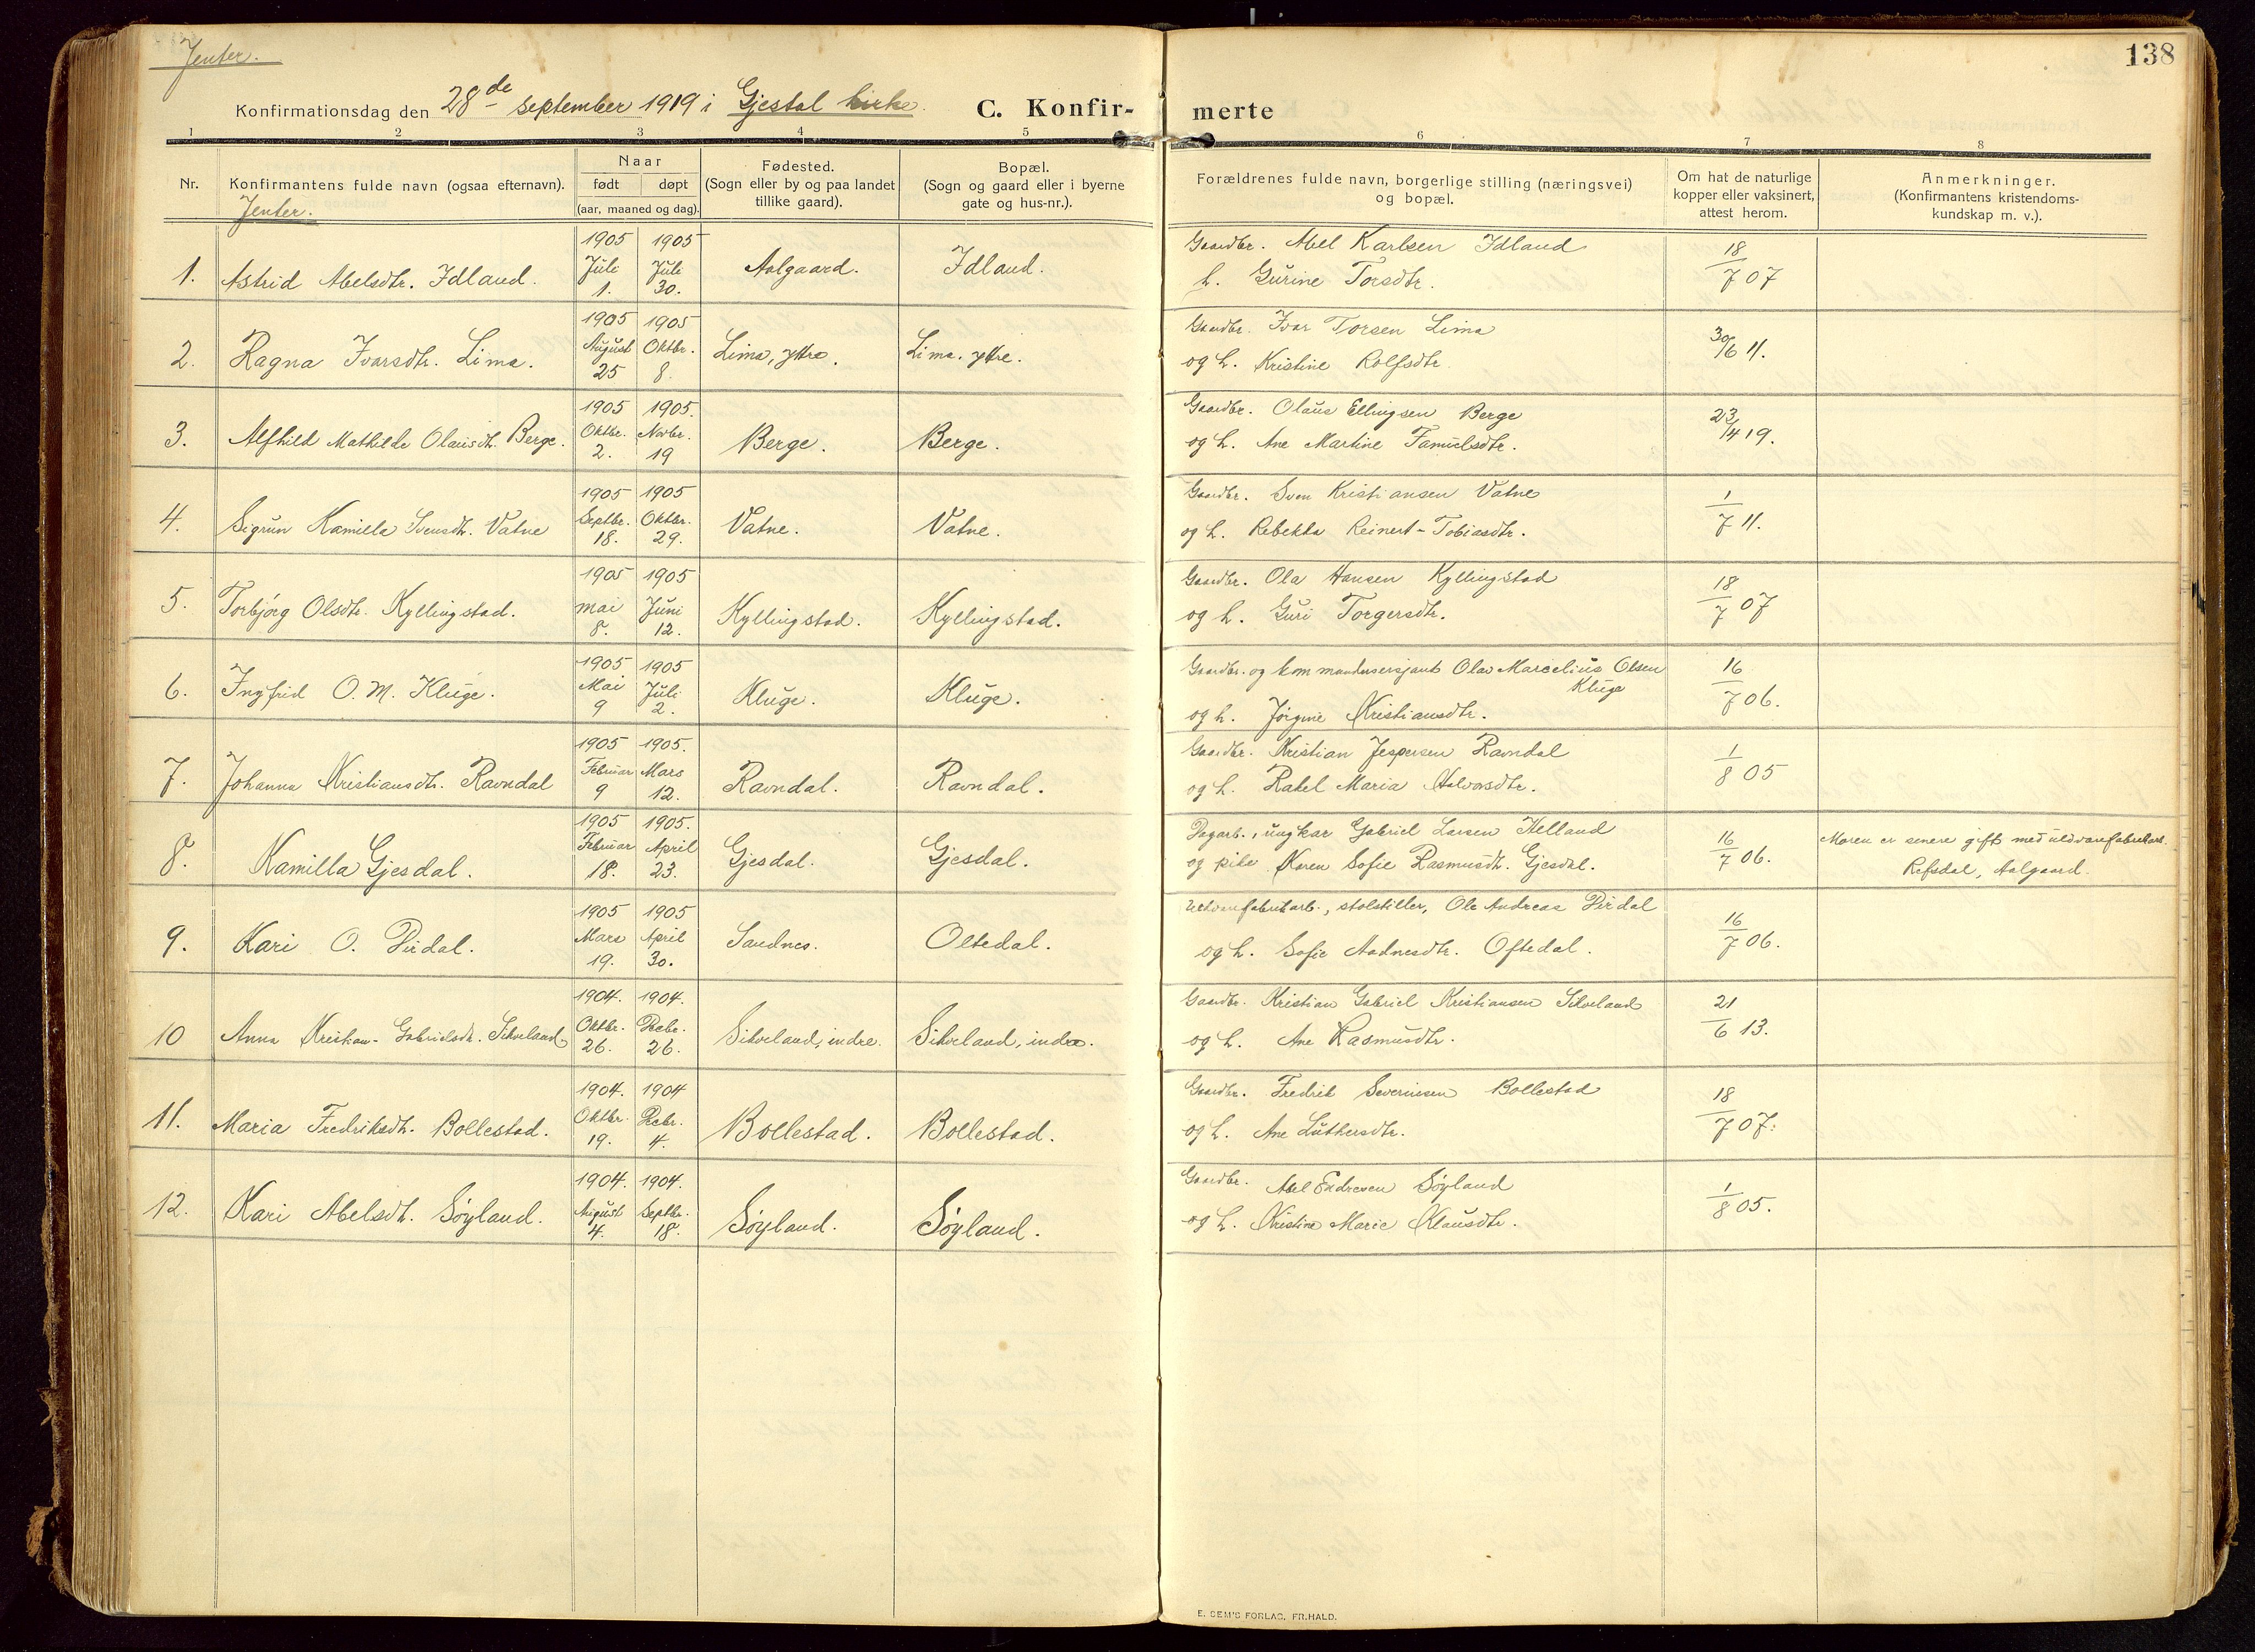 Jenter.
138
Konfirmationsdag den 28de september 1919 i Gjestal kirke. C. Konfir-merte
1 2 3 4 5 6 7 8
Nr.
Konfirmantens fulde navn (ogsaa efternavn).
Jenter.
Naar
født døpt
(aar, maaned og dag).
Fødested.
(Sogn eller by og paa landet
tillike gaard).
Bopæl.
(Sogn og gaard eller i byerne
gate og hus-nr.).
Forældrenes fulde navn, borgerlige stilling (næringsvei)
og bopæl.
Om hat de naturlige
kopper eller vaksinert,
attest herom.
Anmerkninger.
(Konfirmantens kristendoms-
kundskap m. v.).
1. Astrid Abelsdtr. Idland. 1905 Juli 1. 1905 Juli 30. Aalgaard. Idland. Gaardbr. Abel Karlsen Idland 18/7 07
h. Gurine Torsdtr.
2. Ragna Ivarsdtr. Lima. 1905 August 25 1905 Oktbr. 8. Lima, ytre. Lima, ytre. Gaardbr. Ivar Torsen Lima 30/6 11.
og h. Kristine Rolfsdtr
3. Alfhild Mathilde Olausdtr. Berge. 1905 Oktbr. 2. 1905. Novbr. 19 Berge. Berge. Gaardbr. Olaus Ellingsen Berge 23/4 19.
og h. Ane Martine Samuelsdtr.
4. Sigrun Kamilla Svensdtr. Vatne 1905 Septbr. 18. 1905 Oktbr. 29. Vatne. Vatne. Gaardbr. Sven Kristiansen Vatne 1/7 11.
og h. Rebekka Reinert-Tobiasdtr.
5. Torbjørg Olsdtr. Kyllingstad. 1905 mai 8. 1905 Juni 12. Kyllingstad. Kyllingstad. Gaardbr. Ola Hansen Kyllingstad 18/7 07
og h. Guri Torgersdtr.
6. Ingfrid O. M. Kluge. 1905 Mai 9 1905 Juli 2. Kluge. Kluge. Gaardbr. og kommandersersjant Olav Marcelius Olsen Kluge 16/7 06.
og h. Jørgine Kristiansdtr.
7. Johanna Kristiansdtr. Ravndal 1905 Februar 9 1905. Mars 12. Ravndal. Ravndal. Gaardbr. Kristian Jespersen Ravndal 1/8 05
og h. Rakel Maria Halvorsdtr.
8. Kamilla Gjesdal. 1905 Februar 18. 1905. April 23. Gjesdal. Gjesdal. Dagarb., ungkar Gabriel Larsen Helland 16/7 06. Moren er senere gift med uldvarefabrikarb.
og pike Karen Sofie Rasmusdtr. Gjesdal. Refsdal, Aalgaard.
9. Kari O. Dirdal. 1905 Mars 19. 1905 April 30. Sandnes. Oltedal. Uldvarefabrikarb., stolstiller, Ole Andreas Dirdal 16/7 06.
og h. Sofie Aadnesdtr. Oftedal.
10 Anna Kristian-Gabrielsdtr. Sikveland 1904. Oktbr. 26. 1904. Decbr. 26. Sikveland, indre. Sikveland, indre. Gaardbr. Kristian Gabriel Kristiansen Sikveland 21/6 13.
og h. Ane Rasmusdtr.
11. Maria Fredriksdtr. Bollestad. 1904. Oktbr. 19. 1904 Decbr. 4. Bollestad. Bollestad. Gaardbr. Fredrik Severinsen Bollestad 18/7 07.
og h. Ane Luthersdtr.
12. Kari Abelsdtr. Søyland. 1904. August 4. 1904. Septbr. 18. Søyland. Søyland. Gaardbr. Abel Endresen Søyland 1/8 05.
og h. Kristine Marie Klausdtr.
E. SEM'S FORLAG, FR.HALD.